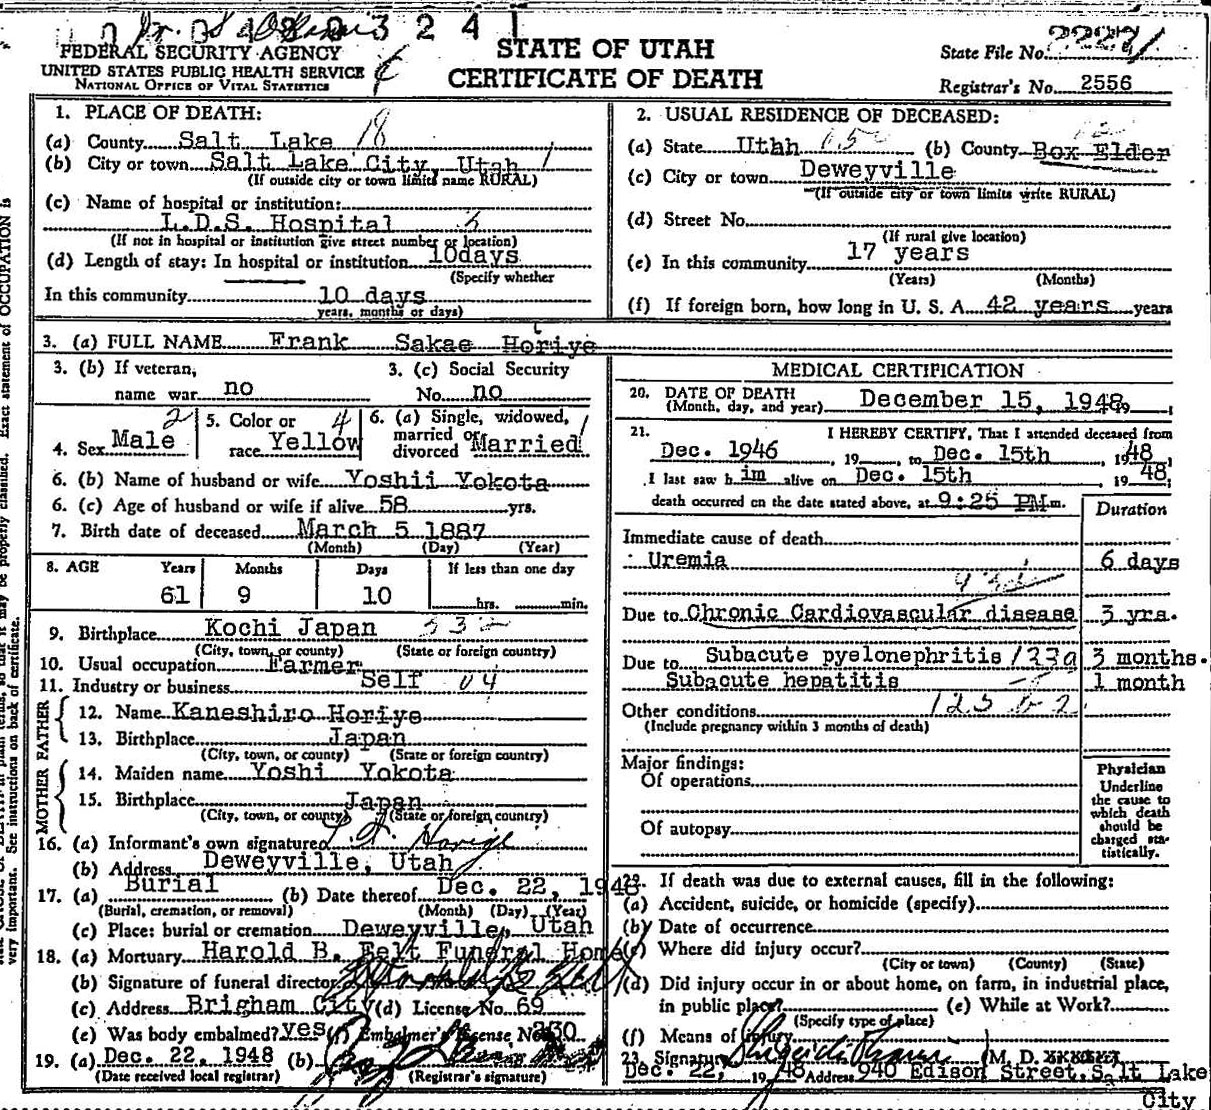 3 2 4 1
FEDERAL SECURITY AGENCY
UNITED STATES PUBLIC HEALTH SERVICE
NATIONAL OFFICE OF VITAL STATISTICS
STATE OF UTAH
CERTIFICATE OF DEATH
State File No.
Registrar's No. 2556
1. PLACE OF DEATH:
(a) County Salt Lake 18
(b) City or town Salt Lake City, Utah
(If outside city or town limits name RURAL)
(c) Name of hospital or institution:
L.D.S. Hospital
(If not in hospital or institution give street number or location)
(d) Length of stay: In hospital or institution 10days
(Specify whether
In this community 10 days
years, months or days)
2. USUAL RESIDENCE OF DECEASED:
(a) State Uthh (b) County Box Elder
(c) City or town Deweyville
(If outside city or town limits write RURAL)
(d) Street No.
(If rural give location)
(e) In this community 17 years
(Years) (Months)
(f) If foreign born, how long in U. S. A. 42 years years
3. (a) FULL NAME Frank Sakae Horiye
3. (b) If veteran, name war no
3. (c) Social Security No. no
4. Sex Male 2
5. Color or race Yellow 4
6. (a) Single, widowed, married or divorced Married
6. (b) Name of husband or wife Yoshii Yokota
6. (c) Age of husband or wife if alive 58 yrs.
7. Birth date of deceased March 5 1887
(Month) (Day) (Year)
8. AGE Years Months Days If less than one day
61 9 10 hrs. min.
9. Birthplace Kochi Japan
(City, town, or county) (State or foreign country)
10. Usual occupation Farmer
11. Industry or business Self
FATHER
12. Name Kaneshiro Horiye
13. Birthplace Japan
(City, town, or county) (State or foreign country)
MOTHER
14. Maiden name Yoshi Yokota
15. Birthplace Japan
(City, town, or county) (State or foreign country)
16. (a) Informant's own signature
(b) Address Deweyville, Utah
17. (a) Burial (b) Date thereof Dec. 22, 1948
(Burial, cremation, or removal) (Month) (Day) (Year)
(c) Place: burial or cremation Deweyville, Utah
18. (a) Mortuary Harold B. Felt Funeral Home
(b) Signature of funeral director
(c) Address Brigham City (d) License No. 69
(e) Was body embalmed? yes (f) Embalmer's License No. 230
19. (a) Dec. 22, 1948 (b)
(Date received local registrar) (Registrar's signature)
MEDICAL CERTIFICATION
20. DATE OF DEATH
(Month, day, and year) December 15, 1948
21. I HEREBY CERTIFY, That I attended deceased from
Dec. 1946, 19 , to Dec. 15th , 1948;
I last saw him alive on Dec. 15th , 19 48;
death occurred on the date stated above, at 9:25 PM m.
Duration
Immediate cause of death
Uremia 6 days
Due to Chronic Cardiovascular disease 3 yrs.
Due to Subacute pyelonephritis 3 months.
Subacute hepatitis 1 month
Other conditions
(Include pregnancy within 3 months of death)
Major findings:
Of operations
Of autopsy
Physician
Underline
the cause to
which death
should be
charged sta-
tistically.
22. If death was due to external causes, fill in the following:
(a) Accident, suicide, or homicide (specify)
(b) Date of occurrence
(c) Where did injury occur?
(City or town) (County) (State)
(d) Did injury occur in or about home, on farm, in industrial place,
in public place? (e) While at Work?
(Specify type of place)
(f) Means of injury
23. Signature (M. D.
Dec. 22, 19 48 Address 940 Edison Street, Salt Lake
City
very important. See instructions on back of certificate.
so that it may be properly classified. Exact statement of OCCUPATION is